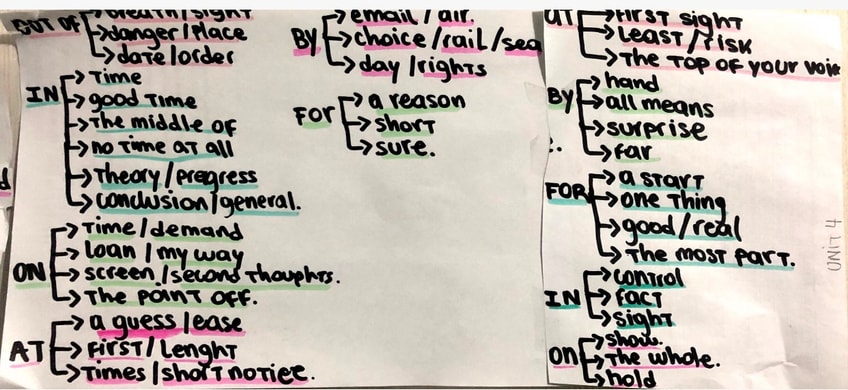 OUT OF
breath/sight
danger/place
date/order
IN
time
good time
the middle of
no time at all
theory/progress
conclusion/general.
ON
time/demand
loan/my way
screen/second thoughts.
the point off.
AT
a guess/ease
first/lenght
times/short notice.
BY
email/air.
choice/rail/sea
day/rights
FOR
a reason
short
sure.
AT
first sight
least/risk
the top of your voice
BY
hand
all means
surprise
far
FOR
a start
one thing
good/real
the most part.
IN
control
fact
sight
ON
show.
the whole.
hold
UNIT 4